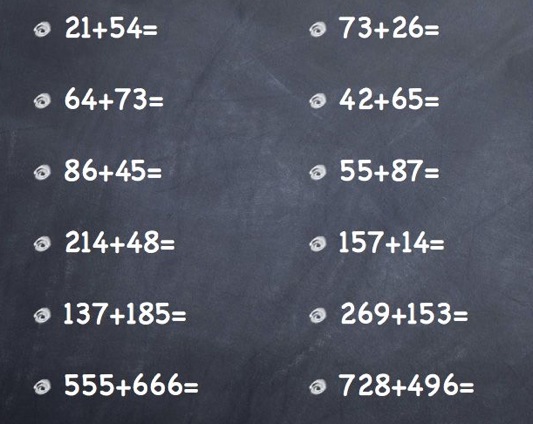 21+54=
73+26=
64+73=
42+65=
86+45=
55+87=
214+48=
157+14=
137+185=
269+153=
555+666=
728+496=